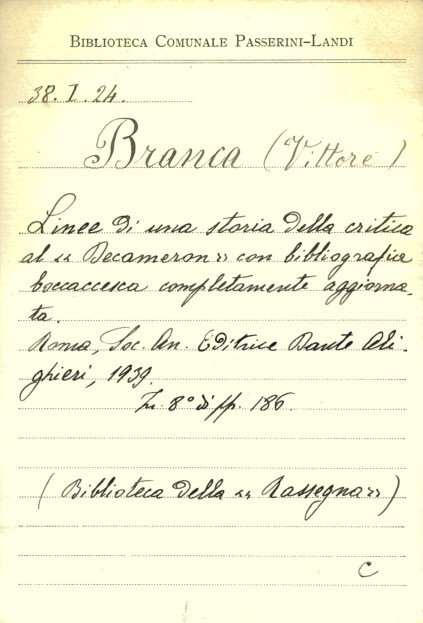 BIBLIOTECA COMUNALE PASSERINI-LANDI
38. I. 24.
Branca (Vittore)
Linee di una storia della critica
al «Decameron» con bibliografia
boccaccesca completamente aggiorna-
ta.
Roma, Soc. An. Editrice Dante Ali-
ghieri, 1939.
In 8° di pp. 186.
(Biblioteca della «Rassegna»)
C